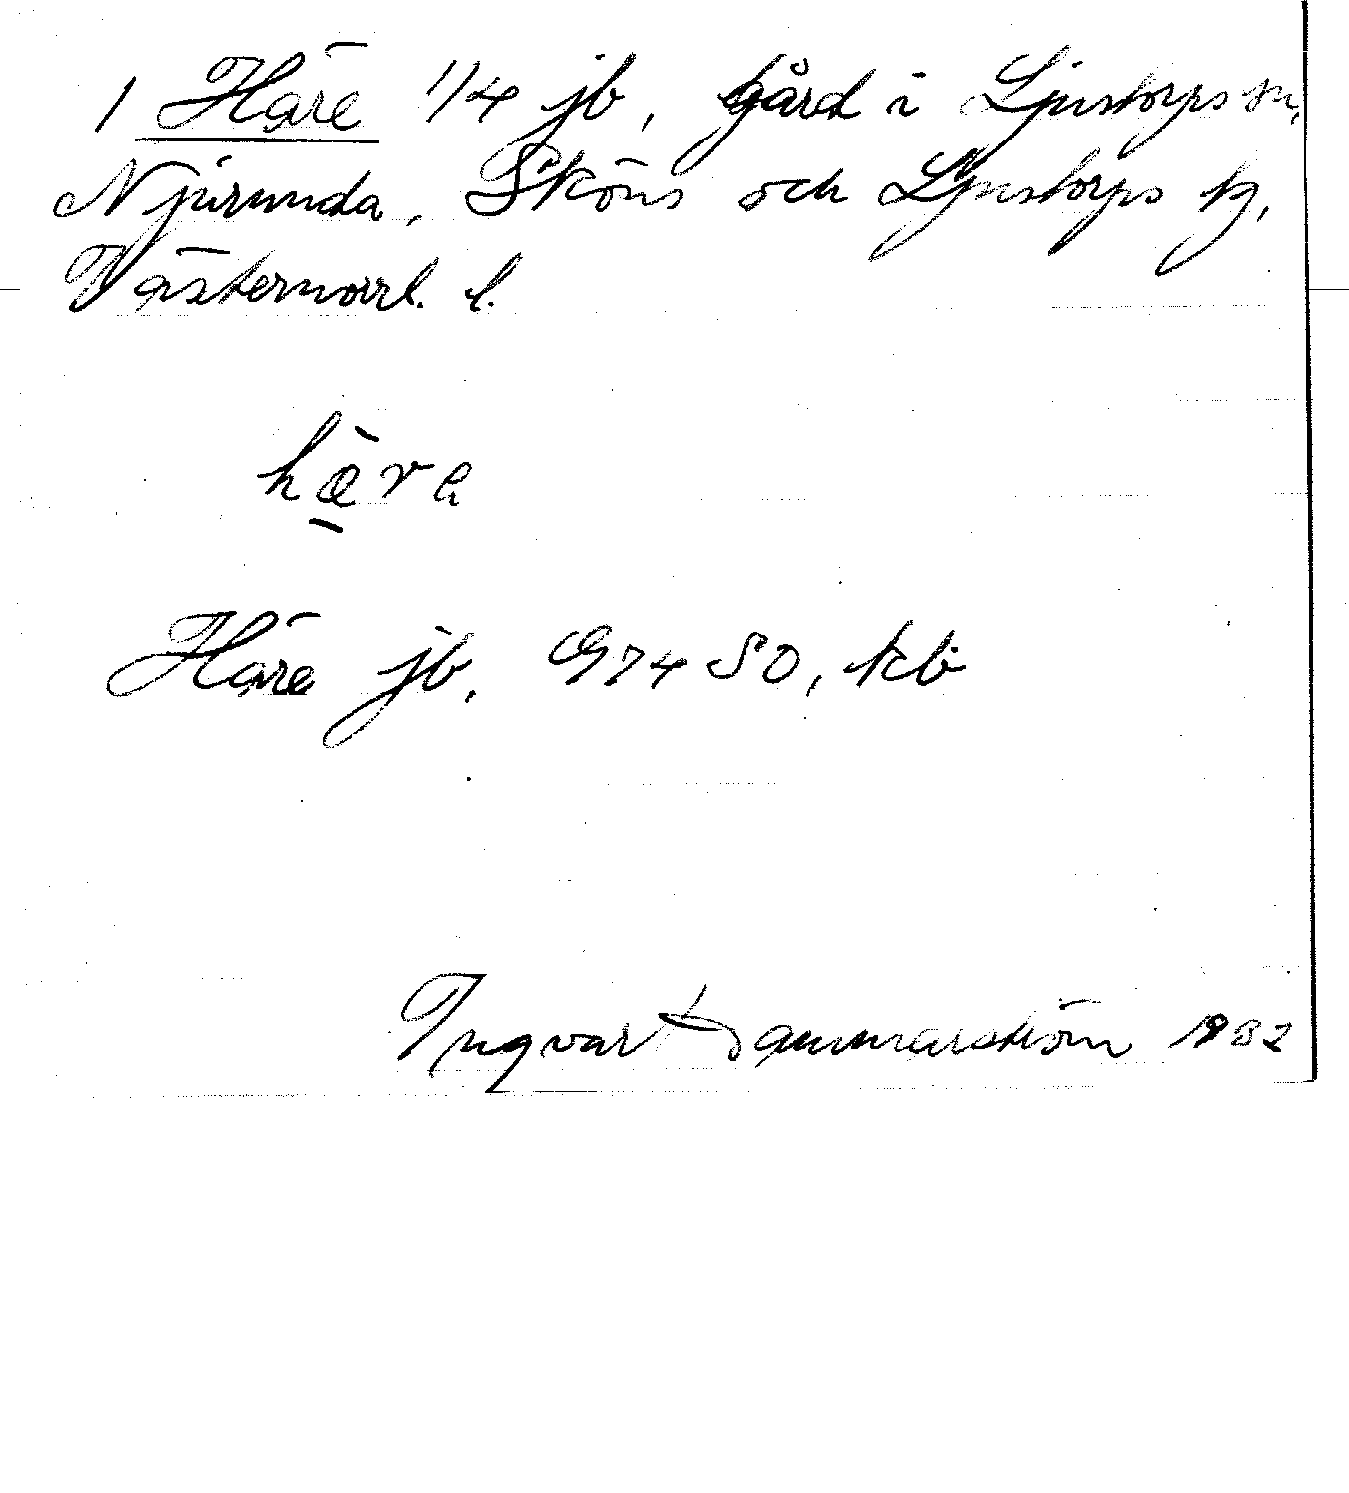 1 Häre 1/4 jb, gård i Ljustorps sn,
Njurunda, Sköns och Ljustorps tg,
Västernorrl. l.
hæ̠̀re
Häre jb, G74 SO, kb
Ingvar Hammarström 1982